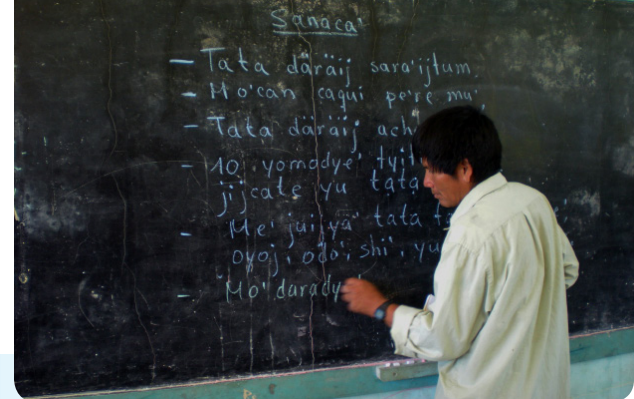 Sanaca'
- Tata däräij sara'ijtum.
- Mo'can caqui pere mu'
- Tata däräij
- 10, yomodye'
jijcate yu tata
- Me' jui, ya' tata
oyoj, odo'i, shi', yu
- Mo' daradye'